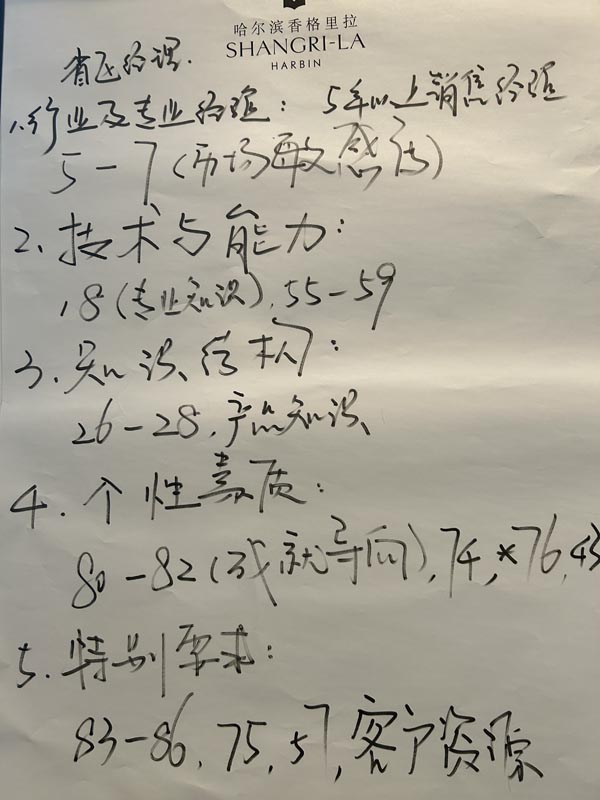 哈尔滨香格里拉
SHANGRI-LA
HARBIN
省区经理.
1.行业及专业经验: 5年以上销售经验
5-7(市场敏感度)
2.技术与能力:
18(专业知识),55-59
3.知识结构:
26-28,产品知识
4.个性素质:
80-82(成就导向),74,*76,43
5.特别要求:
83-86,75,57,客户资源